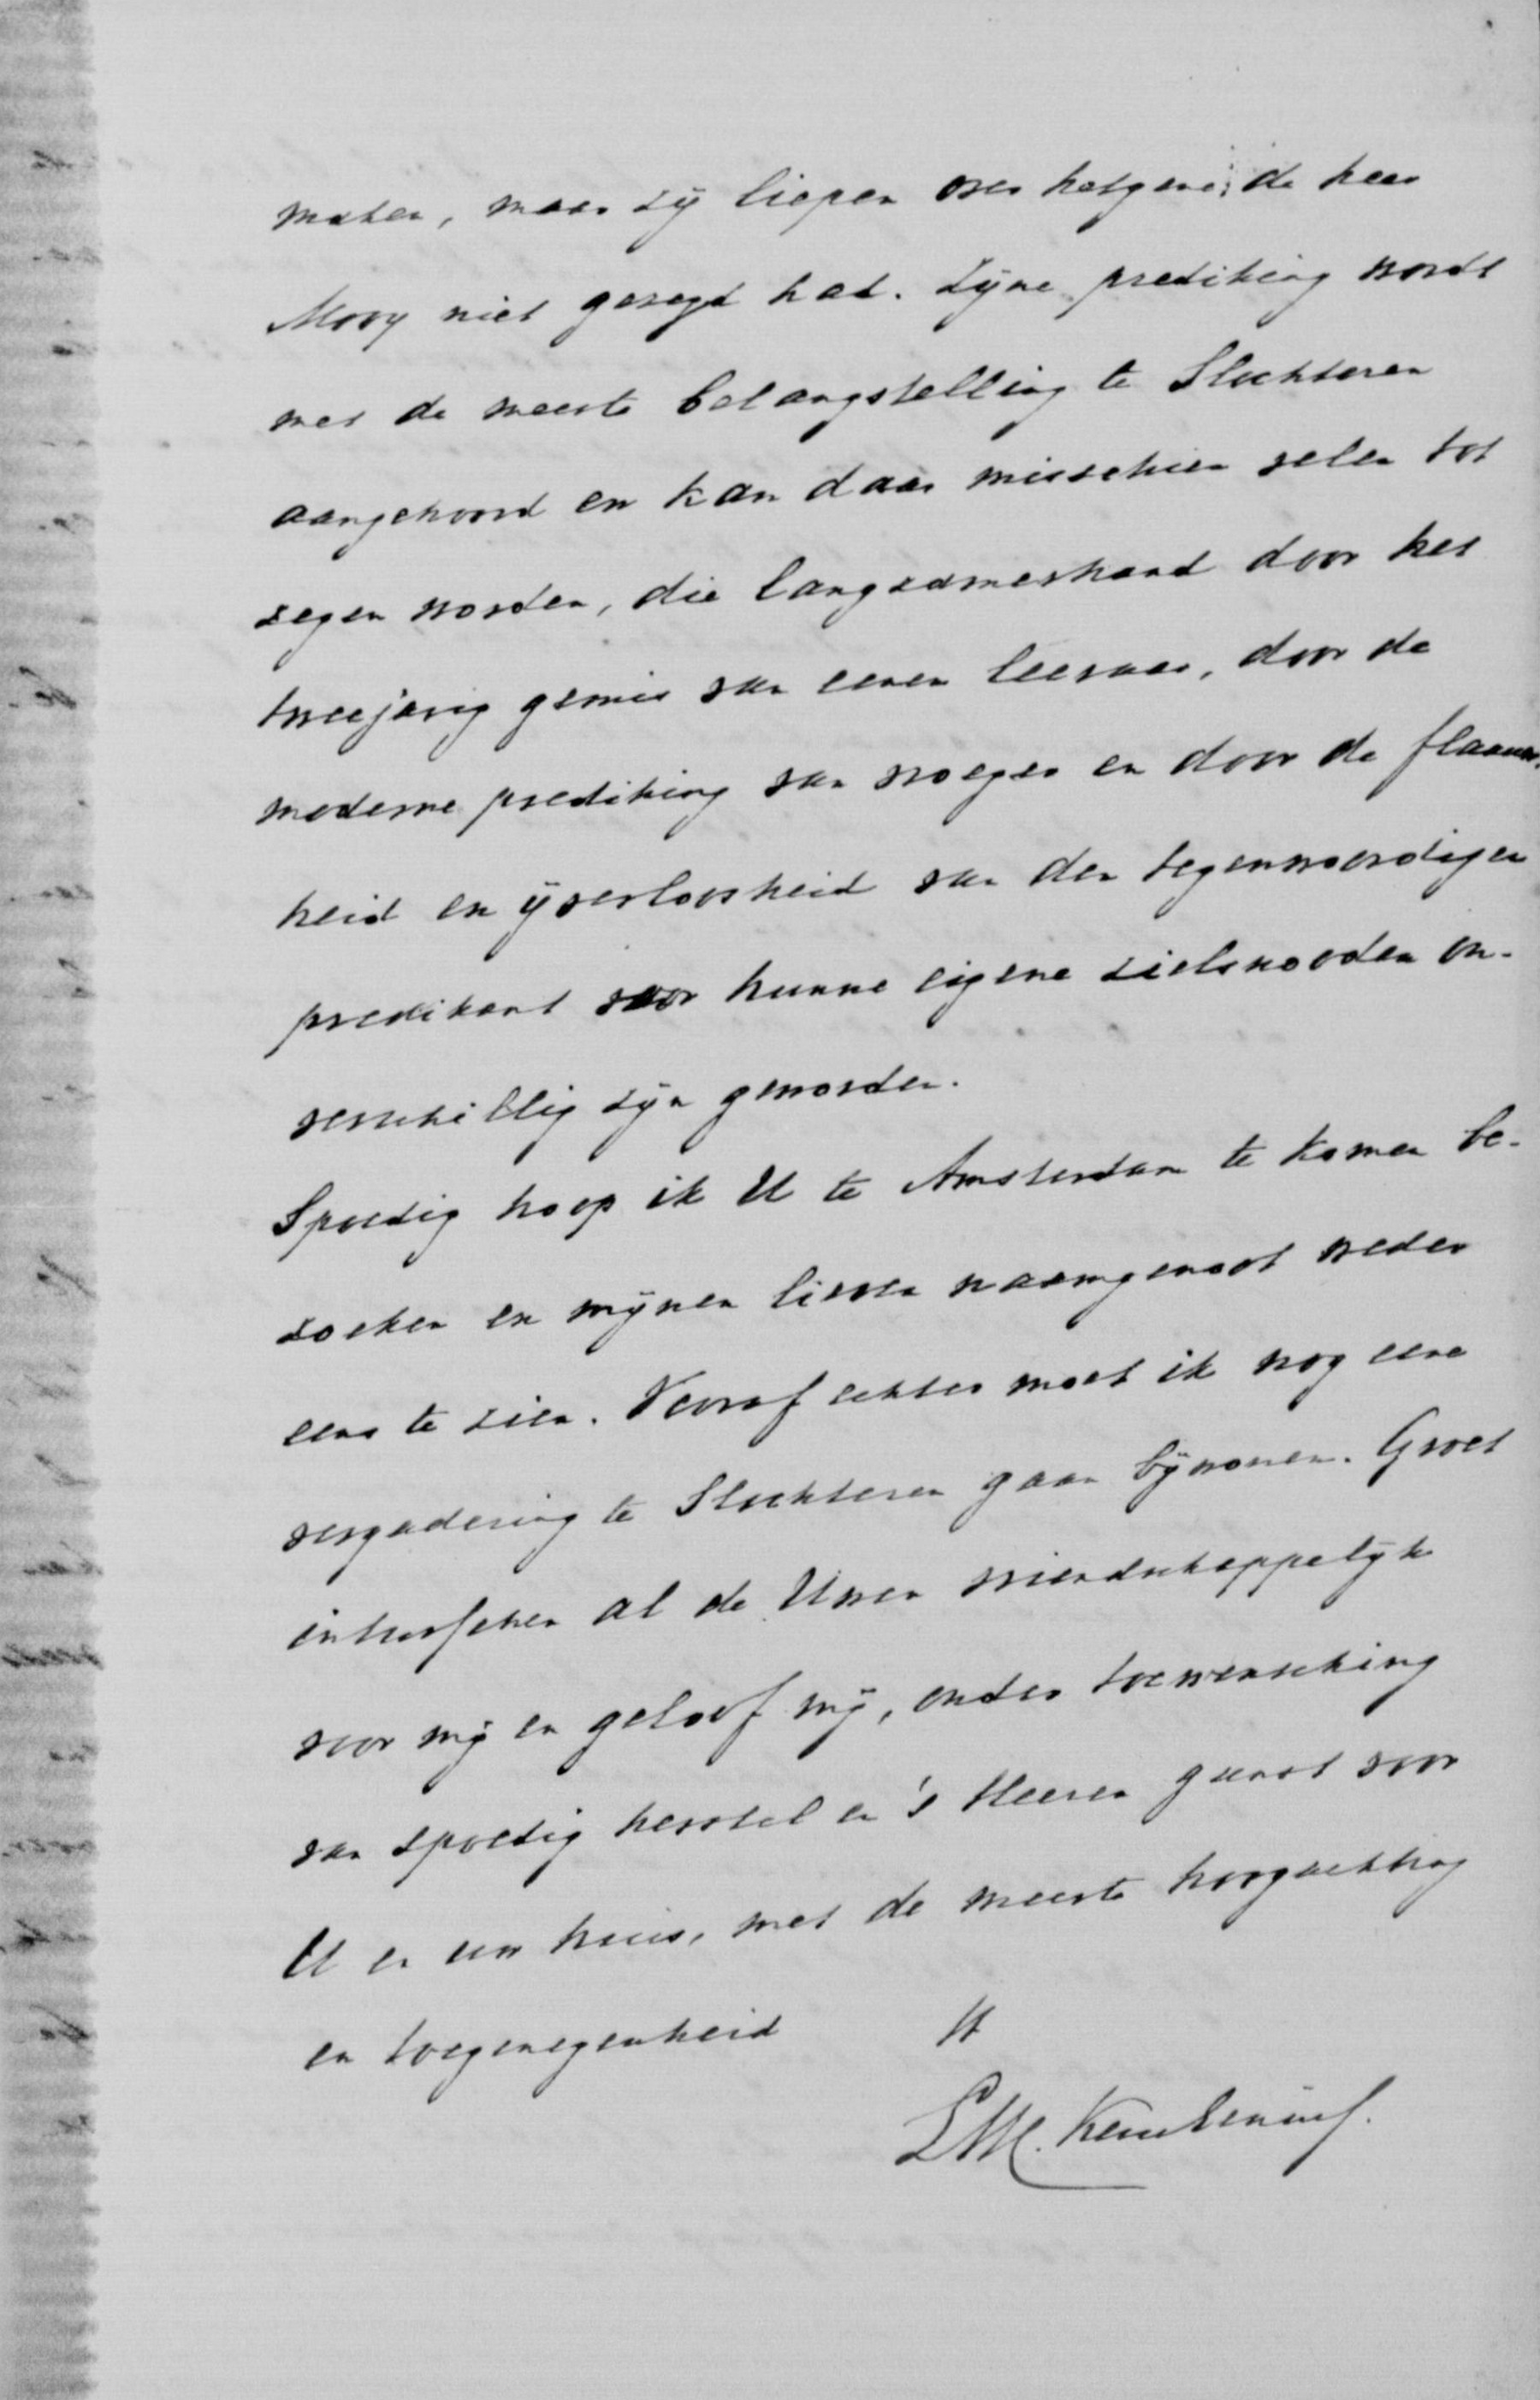 maken, maar zij liepen over hetgene de heer
Mooy niet gezegd had. Zijne prediking wordt
met de meeste belangstelling te Slochteren
aangehoord en kan daar misschien velen tot
zegen worden, die langzamerhand door het
tweejarig gemis van eenen leeraar, door de
moderne prediking van vroeger en door de flaauw-
heid en ijverloosheid van den tegenwoordigen
predikant voor hunne eigene zielsnooden on-
verschillig zijn geworden.
Spoedig hoop ik U te Amsterdam te komen be-
zoeken en mijnen lieven naamgenoot weder
eens te zien. Vooraf echter moet ik nog eene
vergadering te Slochteren gaan bijwonen. Groet
intusschen al de Uwen vriendschappelijk
voor mij en geloof mij, onder toewensching
van spoedig herstel en 's Heeren gunst voor
U en uw huis, met de meeste hoogachting
en toegenegenheid U